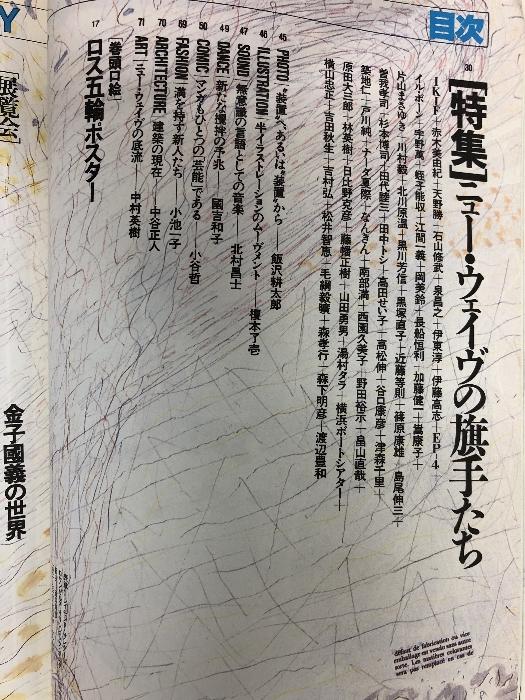 目次
30
[特集]ニュー・ウェイヴの旗手たち
IKIF+赤木美由紀+天野勝+石山修武+泉昌之+伊東淳+伊藤高志+EP-4
イル・ボーン+宇野萬+蛭子能収+江間一義+岡美鈴+長船恒利+加藤健一+嵩康子+
片山まさゆき+川村毅+北川原温+黒川芳信+黒塚直子+近藤等則+篠原康雄+島尾伸三+
曽我孝司+杉本博司+田代睦三+田中トシ+高田せい子+高松伸+谷口康彦+津森千里+
築地仁+戸川純+ナーダ夏際+なんきん+南部満+西園久美子+野田裕示+畠山直哉+
原田大三郎+林英樹+日比野克彦+藤幡正樹+山田勇男+湯村タラ+横浜ボートシアター+
横山忠正+吉田秋生+吉村弘+松井智恵+毛綱毅曠+森孝行+森下明彦+渡辺豊和
45 PHOTO “装置”、あるいは“装置”から——飯沢耕太郎
46 ILLUSTRATION 半イラストレーションのムーヴメント——榎本了壱
47 SOUND 無意識の言語としての音楽——北村昌士
49 DANCE 新たな攪拌の予兆——國吉和子
50 COMIC マンガもひとつの「芸能」である——小谷哲
69 FASHION 満を持す新人たち——小池一子
70 ARCHITECTURE 建築の現在——中谷正人
71 ART ニュー・ウェイヴの底流——中村英樹
17
[巻頭口絵]
ロス五輪ポスター
Y
展覧会]
金子國義の世界
défaut de fabrication ou vice
emballage en vendu sans autre
sorte. Les matières colorantes
sera pas remplacé en cas de